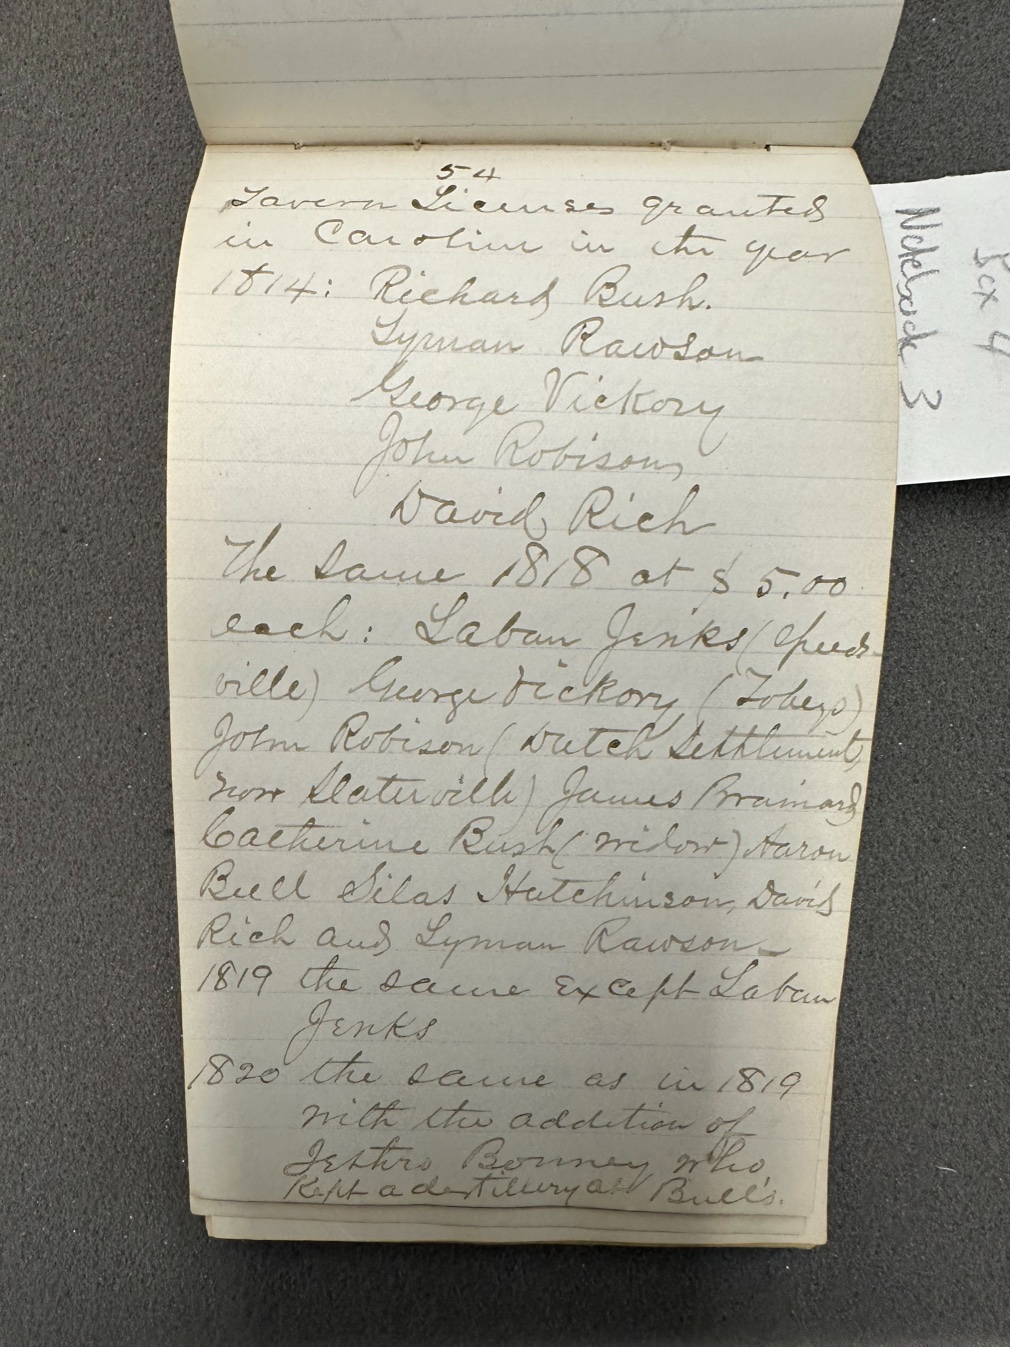 54
Tavern Licenses granted
in Caroline in the year
1814: Richard Bush.
Lyman Rawson
George Vickory
John Robison,
David Rich
The same 1818 at $ 5.00
each: Laban Jenks (Speeds-
ville) George Vickory (Tobeys)
John Robison (Dutch Settlement,
now Slaterville) James Brainard
Catherine Bush (widow) Aaron
Bull Silas Hutchinson, David
Rich and Lyman Rawson
1819 the same except Laban
Jenks
1820 the same as in 1819
with the addition of
Jethro Bonney who
Kept a distillery at Bull's.
Notebook 3
Box 4